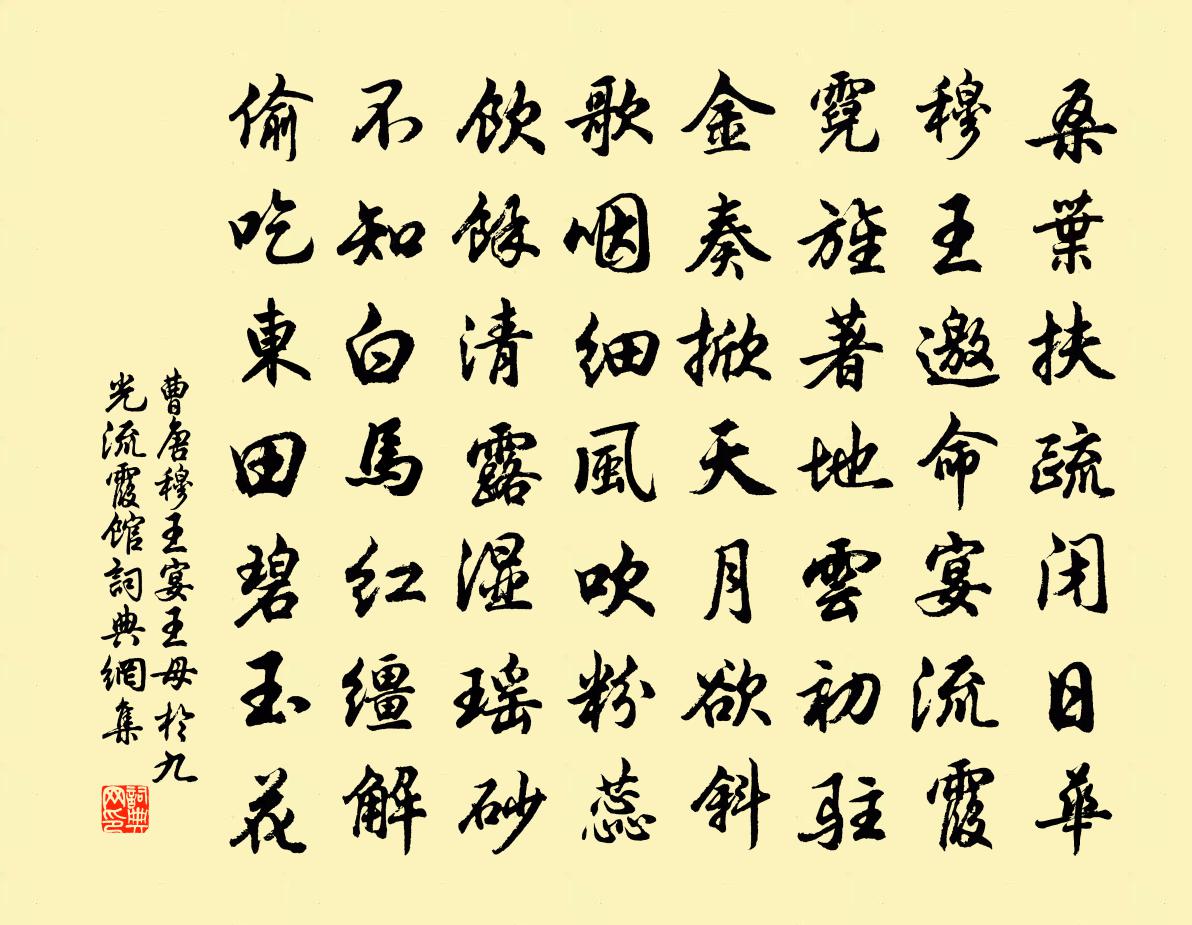 桑葉扶疏闭日華
穆王邀命宴流霞
霓旌著地雲初駐
金奏掀天月欲斜
歌咽细風吹粉蕊
飲餘清露湿瑶砂
不知白馬红缰解
偷吃東田碧玉花
曹唐穆王宴王母於九
光流霞館詞典網集
詞典
网印